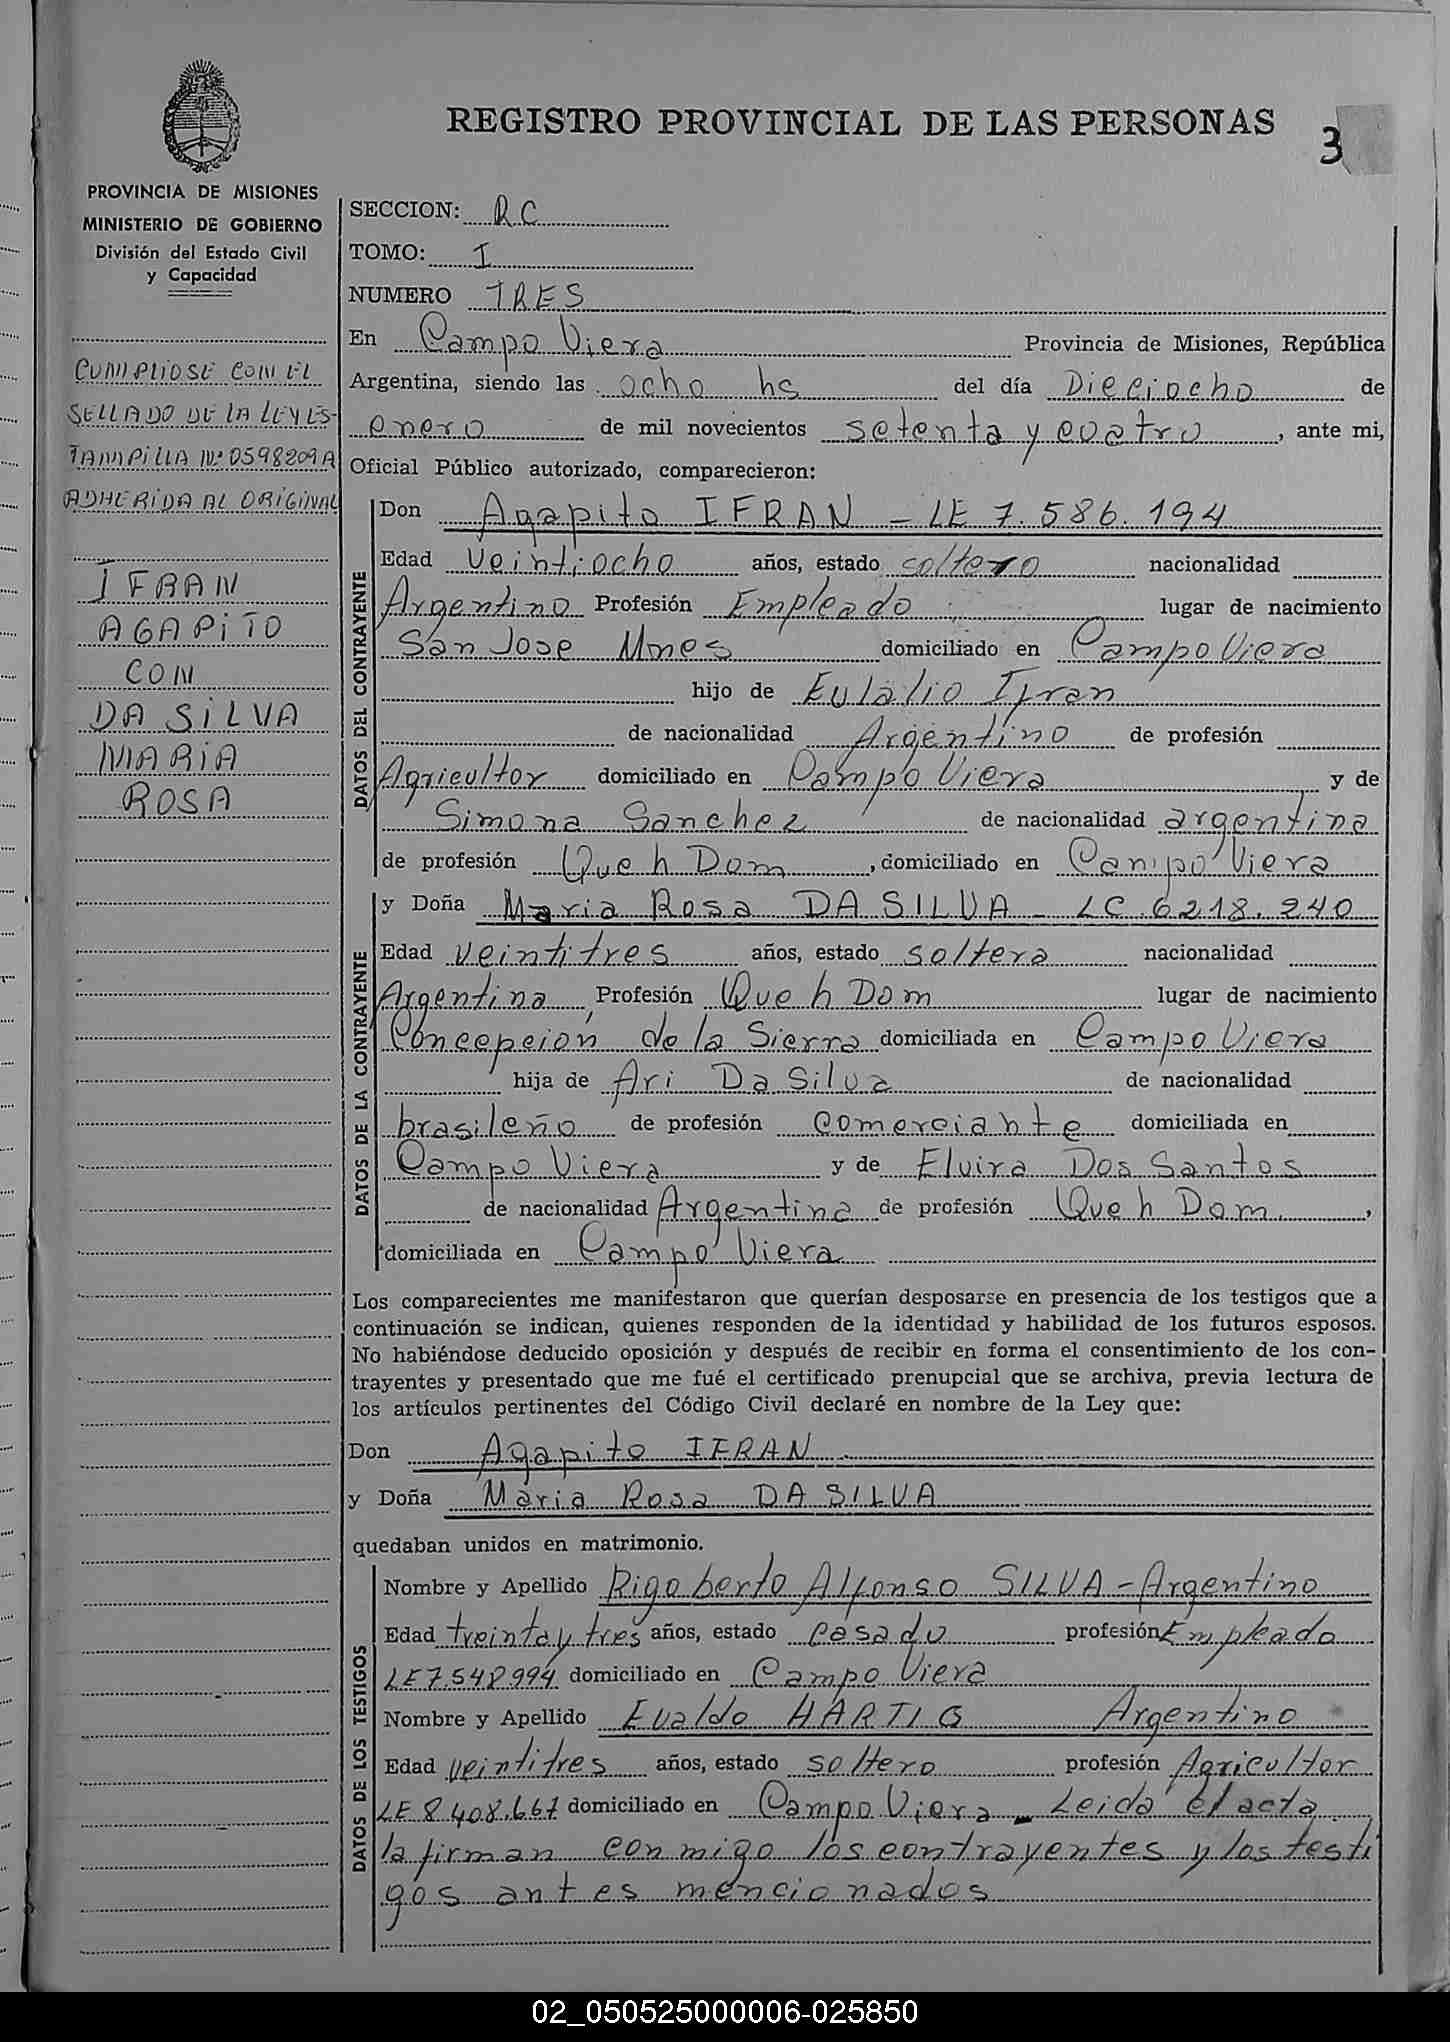 REGISTRO PROVINCIAL DE LAS PERSONAS
3
PROVINCIA DE MISIONES
MINISTERIO DE GOBIERNO
División del Estado Civil
y Capacidad
CUMPLIOSE CON EL
SELLADO DE LA LEY ES-
TAMPILLA Nº 0598209A
ADHERIDA AL ORIGINAL
IFRAN
AGAPITO
CON
DA SILVA
MARIA
ROSA
SECCION: RC
TOMO: I
NUMERO TRES
En Campo Viera Provincia de Misiones, República
Argentina, siendo las ocho hs del día Dieciocho de
enero de mil novecientos setenta y cuatro, ante mi,
Oficial Público autorizado, comparecieron:
DATOS DEL CONTRAYENTE
Don Agapito IFRAN - LE 7.586.194
Edad veintiocho años, estado soltero nacionalidad
Argentino Profesión Empleado lugar de nacimiento
San Jose Mnes domiciliado en Campo Viera
hijo de Eulalio Ifran
de nacionalidad Argentino de profesión
Agricultor domiciliado en Campo Viera y de
Simona Sanchez de nacionalidad argentina
de profesión Que h Dom, domiciliado en Campo Viera
DATOS DE LA CONTRAYENTE
y Doña Maria Rosa DA SILVA - LC 6218.240
Edad veintitres años, estado soltera nacionalidad
Argentina, Profesión Que h Dom lugar de nacimiento
Concepción de la Sierra domiciliada en Campo Viera
hija de Ari Da Silva de nacionalidad
brasileño de profesión Comerciante domiciliada en
Campo Viera y de Elvira Dos Santos
de nacionalidad Argentina de profesión Que h Dom.,
domiciliada en Campo Viera
Los comparecientes me manifestaron que querían desposarse en presencia de los testigos que a
continuación se indican, quienes responden de la identidad y habilidad de los futuros esposos.
No habiéndose deducido oposición y después de recibir en forma el consentimiento de los con-
trayentes y presentado que me fué el certificado prenupcial que se archiva, previa lectura de
los artículos pertinentes del Código Civil declaré en nombre de la Ley que:
Don Agapito IFRAN
y Doña Maria Rosa DA SILVA
quedaban unidos en matrimonio.
DATOS DE LOS TESTIGOS
Nombre y Apellido Rigoberto Alfonso SILVA - Argentino
Edad treinta y tres años, estado casado profesión Empleado
LE 7.548.994 domiciliado en Campo Viera
Nombre y Apellido Evaldo HARTIG Argentino
Edad veintitres años, estado soltero profesión Agricultor
LE 8.408.667 domiciliado en Campo Viera - Leida el acta
la firman conmigo los contrayentes y los testi
gos antes mencionados
02_050525000006-025850